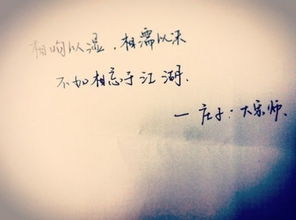 相呴以湿，相濡以沫
不如相忘于江湖.
— 庄子：大宗师.